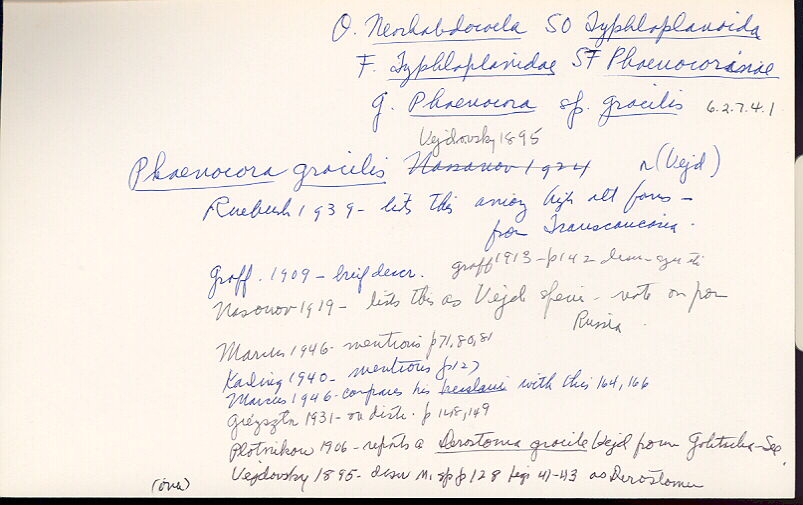 O. Neorhabdocoela SO Typhloplanoida
F. Typhloplanidae SF Phaenocorinae
g. Phaenocora sp. gracilis 6.2.7.4.1
Vejdovsky 1895
Phaenocora gracilis Nassanov 1924 n (Vejd)
Ruebush 1939 - lists this among high alt forms -
from Transcaucasia.
Graff. 1909 - brief descr. Graff 1913 - p142 -
Nasonov 1919 - lists this as Vejd species - note on from
Russia.
Marcus 1946 - mentions p71, 80, 81
1940 - mentions p127
Marcus 1946 - compares his with this 164, 166
1931 - on distr. p 148, 149
Plotnikow 1906 - reports a Derostoma gracile Vejd from See.
Vejdovsky 1895 - descr n. sp p128 figs 41-43 as Derostoma
(over)